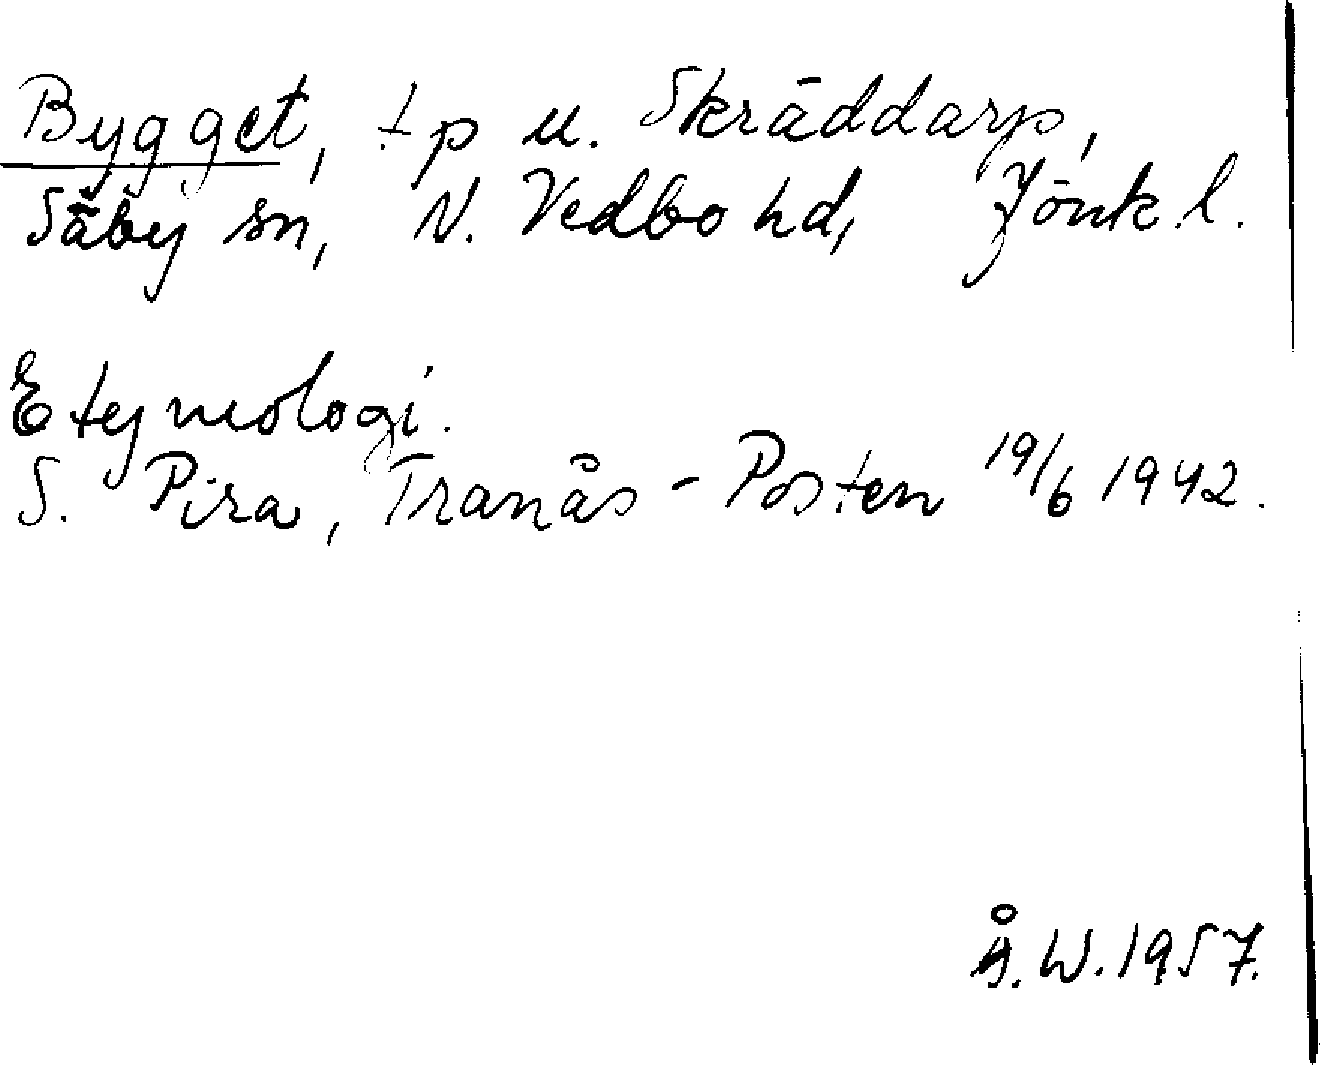 Bygget, tp u. Skräddarp,
Säby sn, N. Vedbo hd, Jönk. l.
Etymologi.
S. Pira, Tranås-Posten 19/6 1942.
Å. W. 1957.